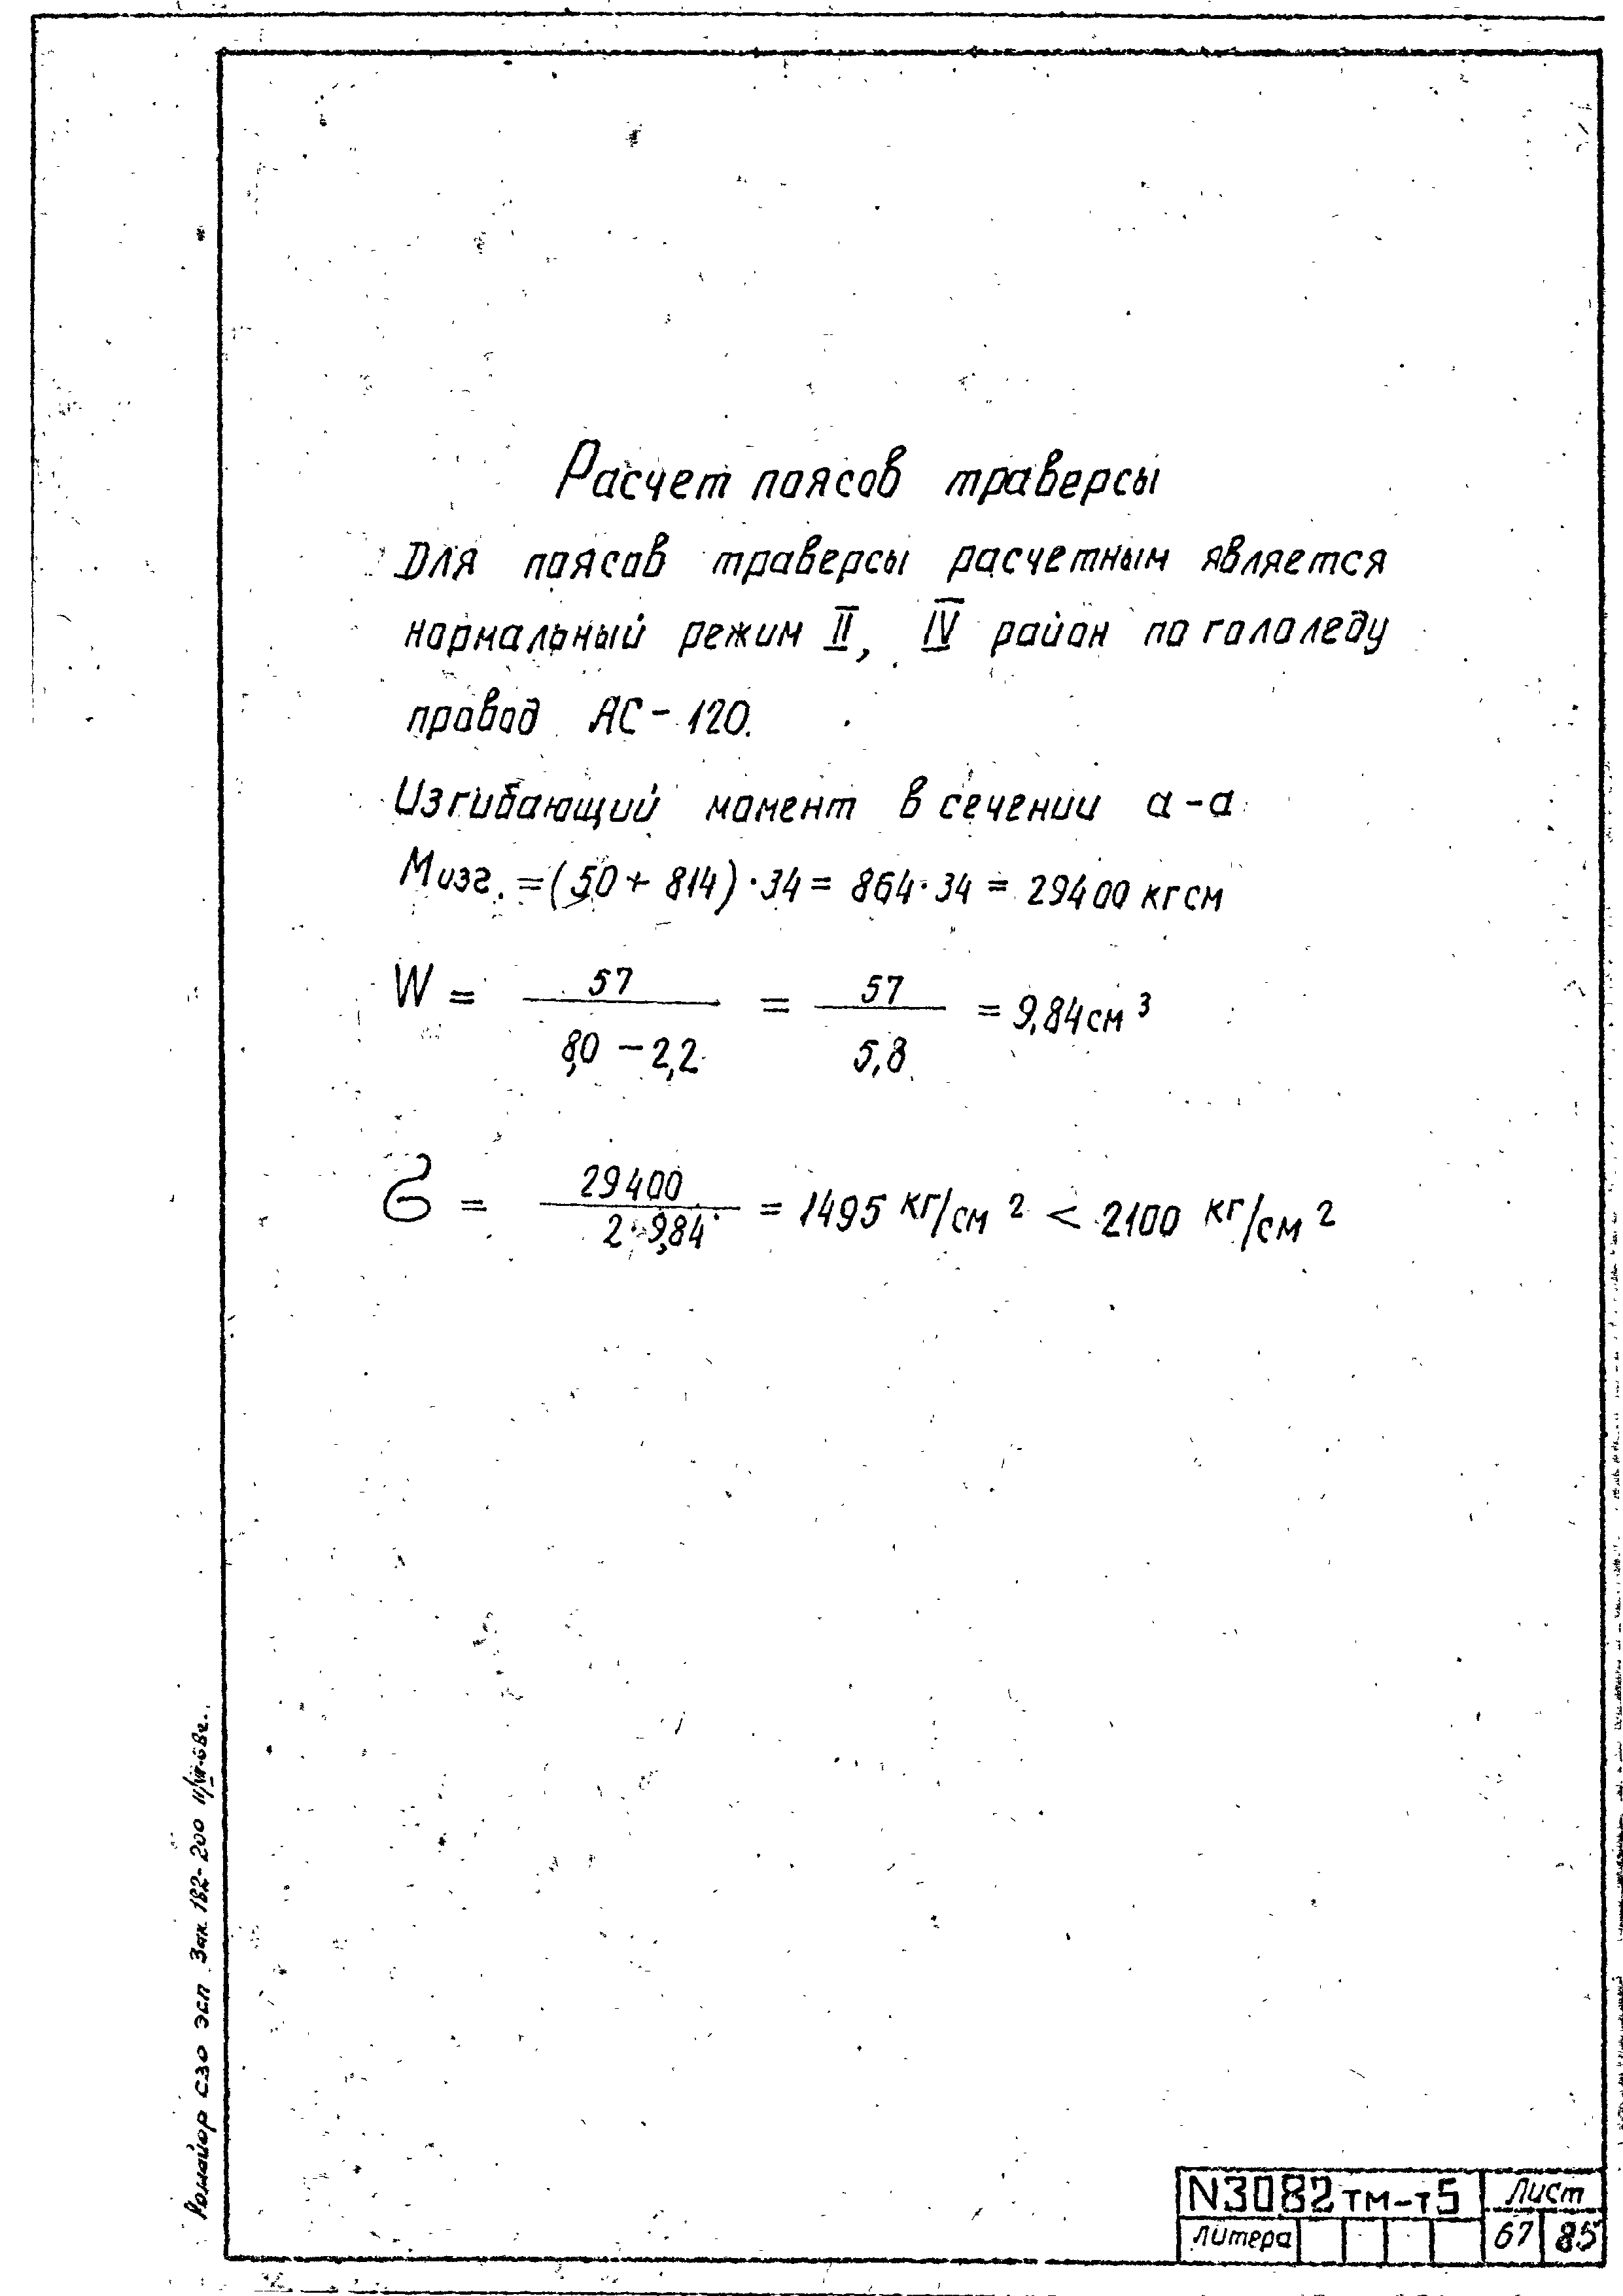 Расчет поясов траверсы
Для поясов траверсы расчетным является
нормальный режим II, IV район по гололеду
провод АС-120.
Изгибающий момент в сечении а-а
Mизг. = (50 + 814) · 34 = 864 · 34 = 29400 кгсм
W = 57 / 8,0 - 2,2 = 57 / 5,8 = 9,84 см³
σ = 29400 / 2 · 9,84 = 1495 кг/см² < 2100 кг/см²
СЗО ЭСП Зак. 182-200
N3082тм-т5 Лист
Литера 67 85